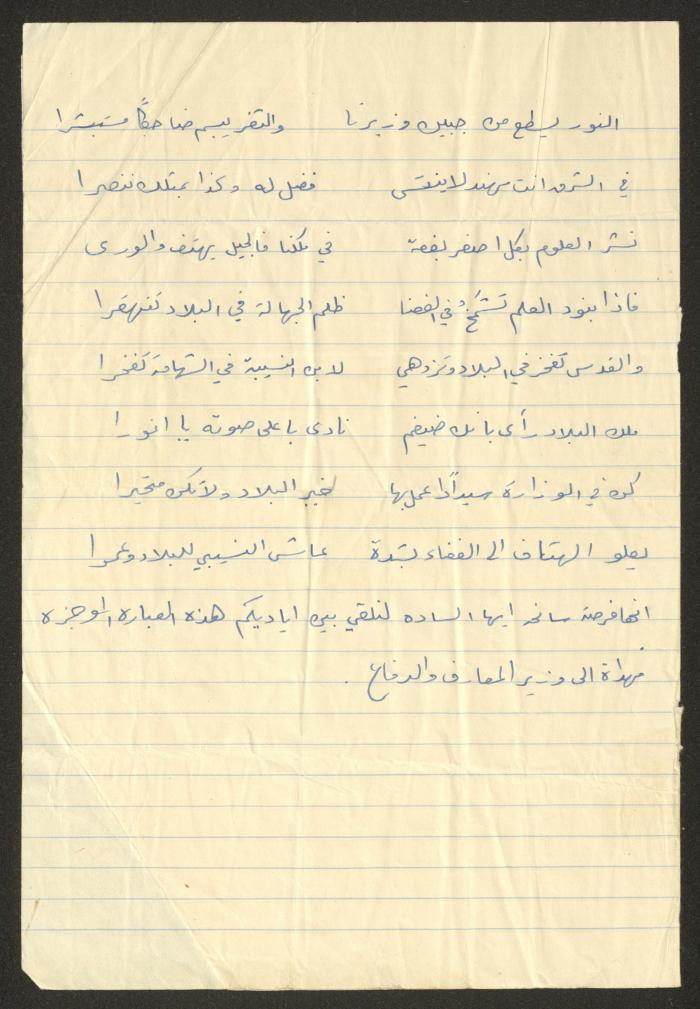 النور يسطع من جبين وزيرنا والثغر يبسم ضاحكاً مستبشرا
في الشرق انت مهند لا ينثني فضل له وكذا بمثلك ننصرا
نشر العلوم بكل اصغر بقعة في ملكنا فالجيل يهتف والورى
فاذا بنود العلم تشمخُ في الفضا ظلم الجهالة في البلاد تقهقرا
والقدس تفخر في البلاد وتزدهي لابن النسيبة في الشهامة تفخرا
ملك البلاد رأى بانك ضيغم نادى باعلى صوته يا انورا
كن في الوزارة سيداً اعمل بها خير البلاد ولا تكن متحيرا
يعلو الهتاف الى الفضاء بشدة عاش النسيبي للبلاد وعمرا
انها فرصة سانحه ايها الساده لنلقي بين اياديكم هذه العباره الموجزه
مهداة الى وزير المعارف والدفاع .